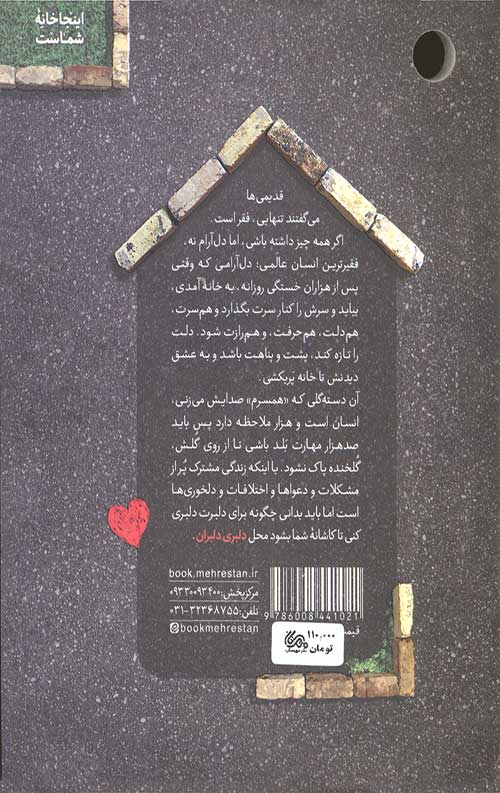 اینجا خانهٔ
شماست
قدیمی‌ها
می‌گفتند تنهایی، فقر است.
اگر همه چیز داشته باشی، اما دل‌آرام نه،
فقیرترین انسان عالَمی؛ دل‌آرامی که وقتی
پس از هزاران خستگی روزانه، به خانه آمدی،
بیاید و سرش را کنار سرت بگذارد و هم‌سرت،
هم‌دلت، هم‌حرفت، و هم‌رازت شود. دلت
را تازه کند، پشت و پناهت باشد و به عشق
دیدنش تا خانه پَر بکشی.
آن دسته‌گلی که «همسرم» صدایش می‌زنی،
انسان است و هزار ملاحظه دارد پس باید
صدهزار مهارت بَلد باشی تا از روی گلش،
گُلخنده پاک نشود. با اینکه زندگی مشترک پُر از
مشکلات و دعواها و اختلافات و دلخوری‌ها
است اما باید بدانی چگونه برای دلبرت دلبری
کنی تا کاشانهٔ شما بشود محل دلبری دلبران.
book.mehrestan.ir
مرکز پخش: ۰۹۳۳۰۰۹۳۴۰۰
تلفن: ۳۲۳۶۸۷۵۵-۰۳۱
@bookmehrestan
9 786008 441021
قیمت
۱۱۰,۰۰۰
تومان